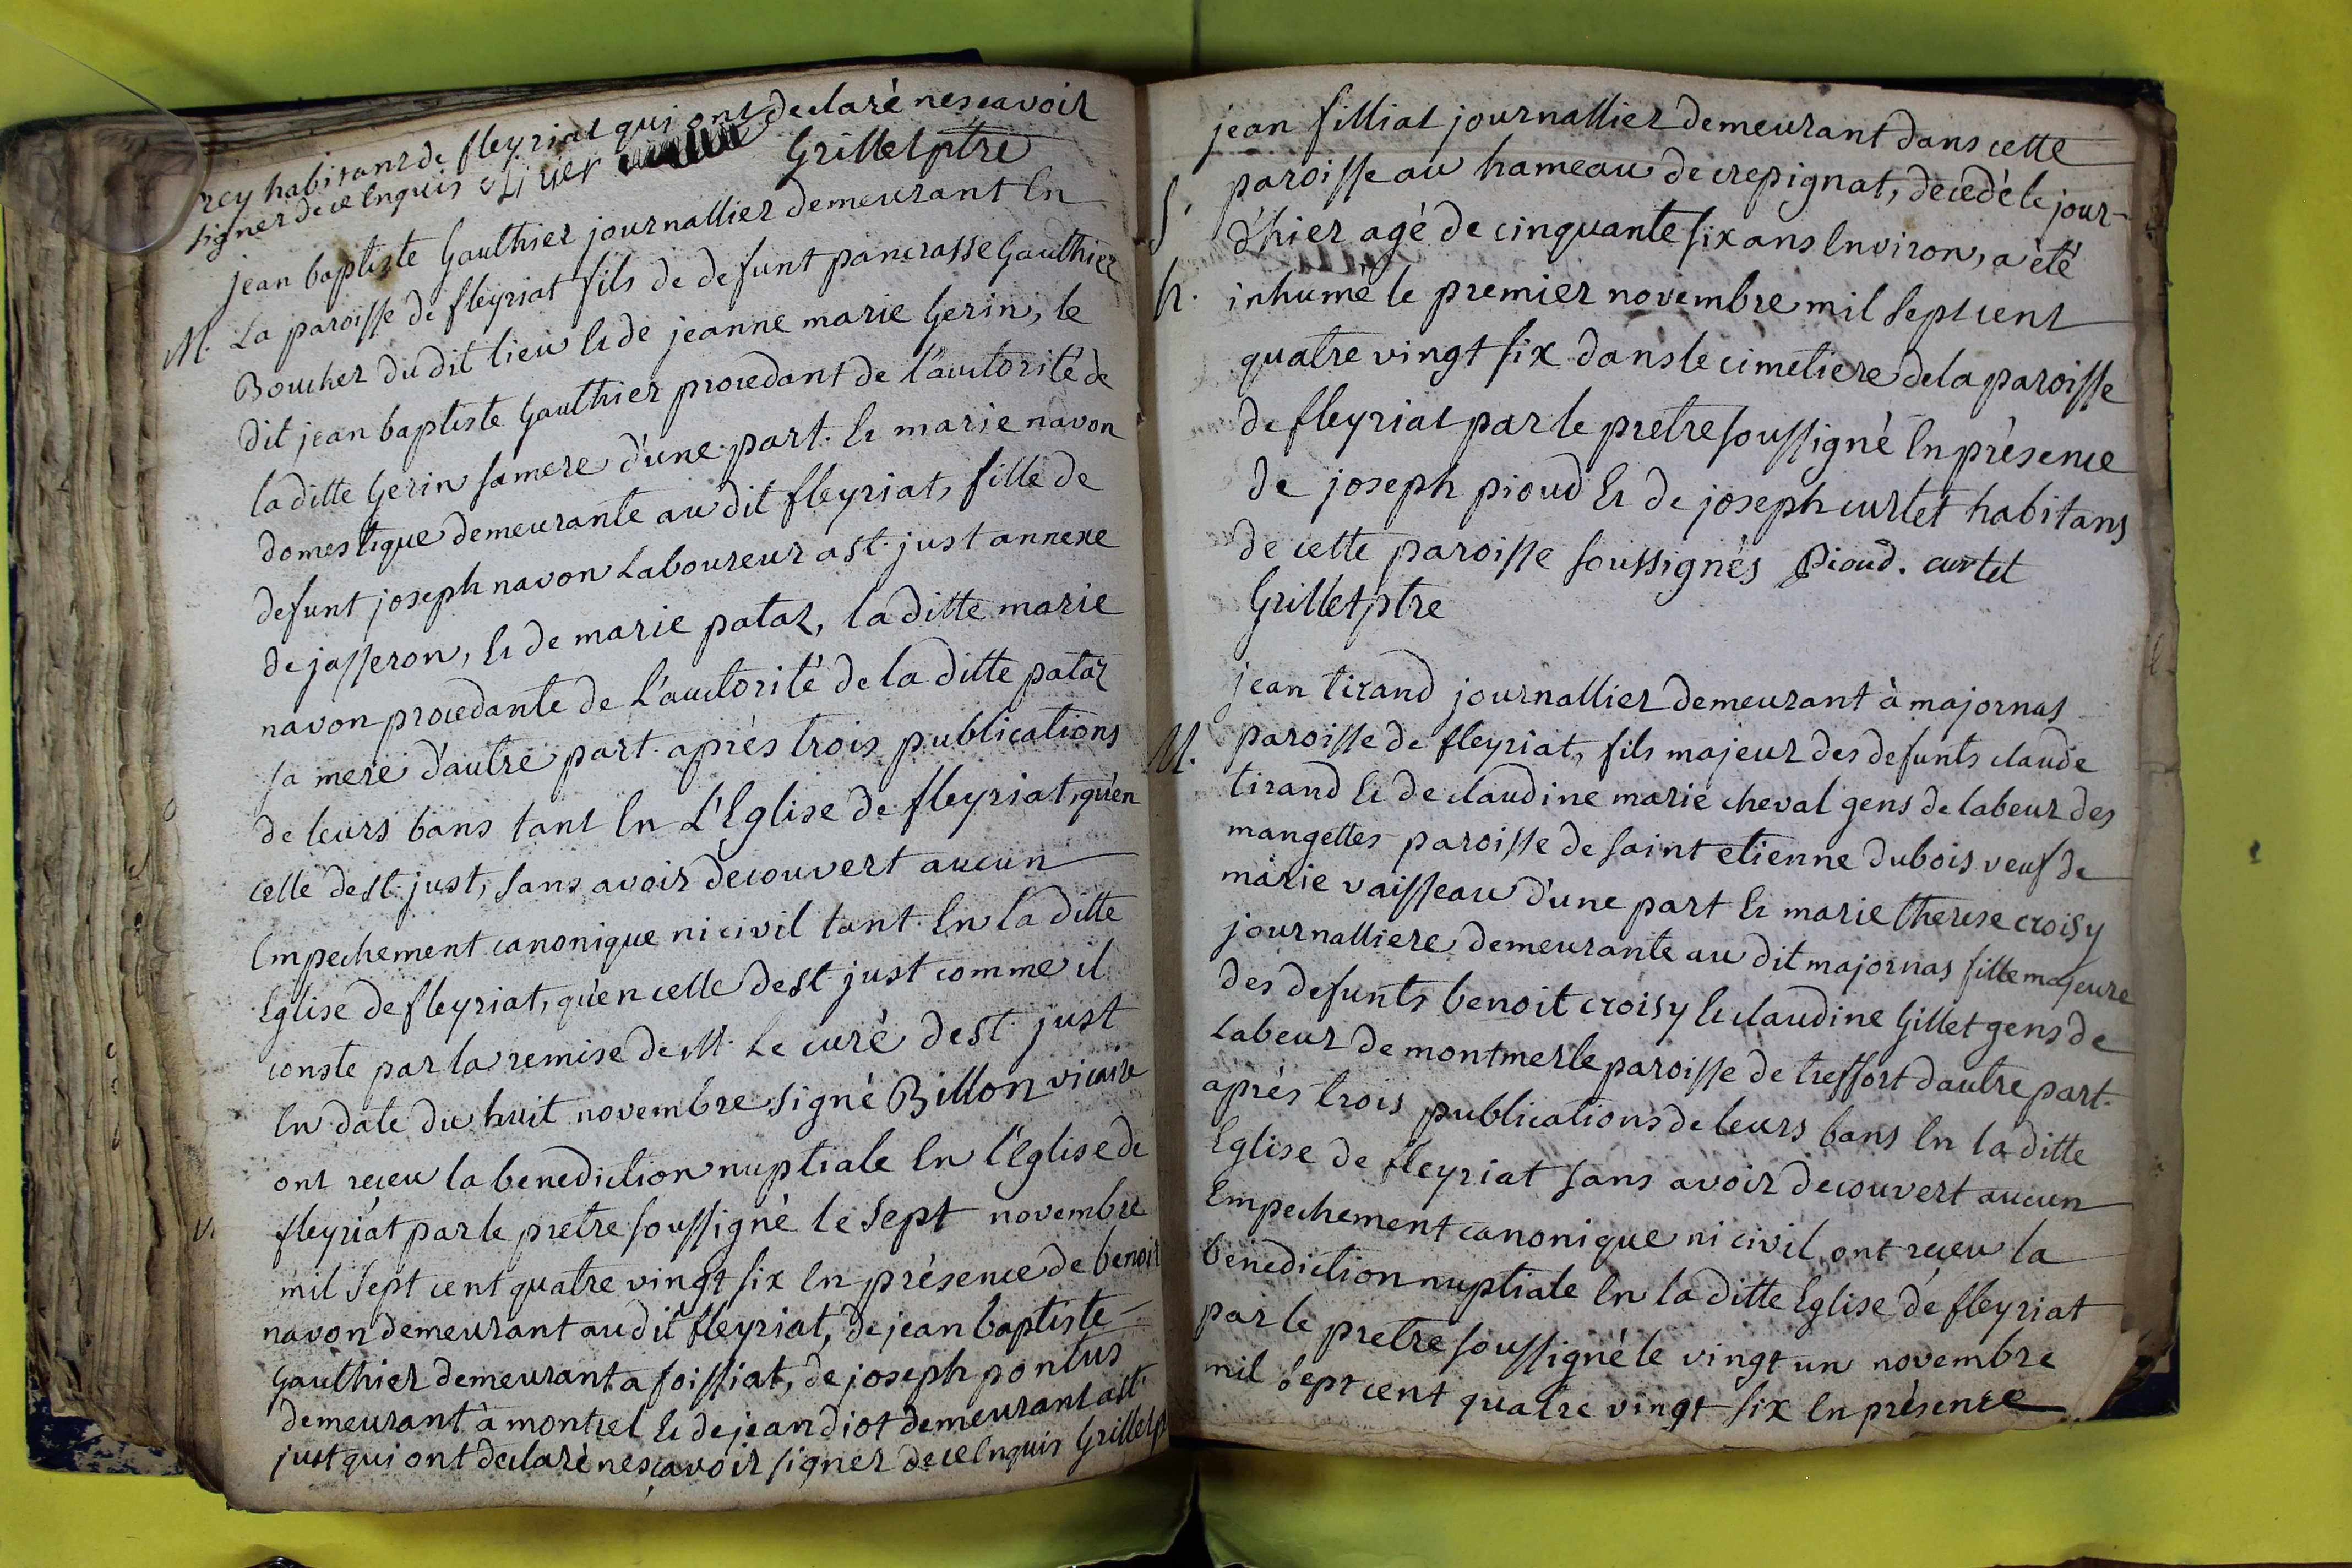 rey habitans de fleyriat qui ont declaré nescavoir
signer de ce Enquis Grillet ptre
jean baptiste Gauthier journallier demeurant En
M. La paroisse de fleyriat fils de defunt pancrasse Gauthier
Boucher du dit lieu Et de jeanne marie Gerin, le
dit jean baptiste Gauthier procedant de l'autorité de
la ditte Gerin sa mere d'une part. Et marie navon
domestique demeurante au dit fleyriat, fille de
defunt joseph navon Laboureur a st. just annexe
de jasseron, Et de marie pataz, la ditte marie
navon procedante de L'autorité de la ditte pataz
sa mere d'autre part. après trois publications
de leurs bans tant En L'Eglise de fleyriat, qu'en
celle de st. just, sans avoir decouvert aucun
Empechement canonique ni civil tant En la ditte
Eglise de fleyriat, qu'en celle de st. just comme il
conste par la remise de M. Le curé de st. just
En date du huit novembre signé Billon vicaire
ont reçeu la benediction nuptiale En l'Eglise de
fleyriat par le pretre soussigné le sept novembre
mil sept cent quatre vingt six En présence de benoit
navon demeurant au dit fleyriat, de jean baptiste
Gauthier demeurant a foissiat, de joseph pontus
demeurant à montcel Et de jean diot demeurant a st.
just qui ont declaré nesçavoir signer de ce Enquis Grillet p
jean filliat journallier demeurant dans cette
paroisse au hameau de crepignat, decedé le jour-
S. d'hier agé de cinquante six ans Environ, a été
h. inhumé le premier novembre mil sept cent
quatre vingt six dans le cimetiere de la paroisse
de fleyriat par le pretre soussigné En présence
de joseph pioud Et de joseph curtet habitans
de cette paroisse soussignés Pioud. curtet
Grillet ptre
jean tirand journallier demeurant à majornas
M. paroisse de fleyriat, fils majeur des defunts claude
tirand Et de claudine marie cheval gens de labeur des
mangettes paroisse de saint etienne dubois veuf de
marie vaisseau d'une part Et marie therese croisy
journalliere demeurante au dit majornas fille majeure
des defunts benoit croisy Et claudine Gillet gens de
Labeur de montmerle paroisse de treffort d'autre part.
après trois publications de leurs bans En la ditte
Eglise de fleyriat sans avoir decouvert aucun
Empechement canonique ni civil, ont reçeu la
benediction nuptiale En la ditte Eglise de fleyriat
par le pretre soussigné le vingt un novembre
mil sept cent quatre vingt six En présence